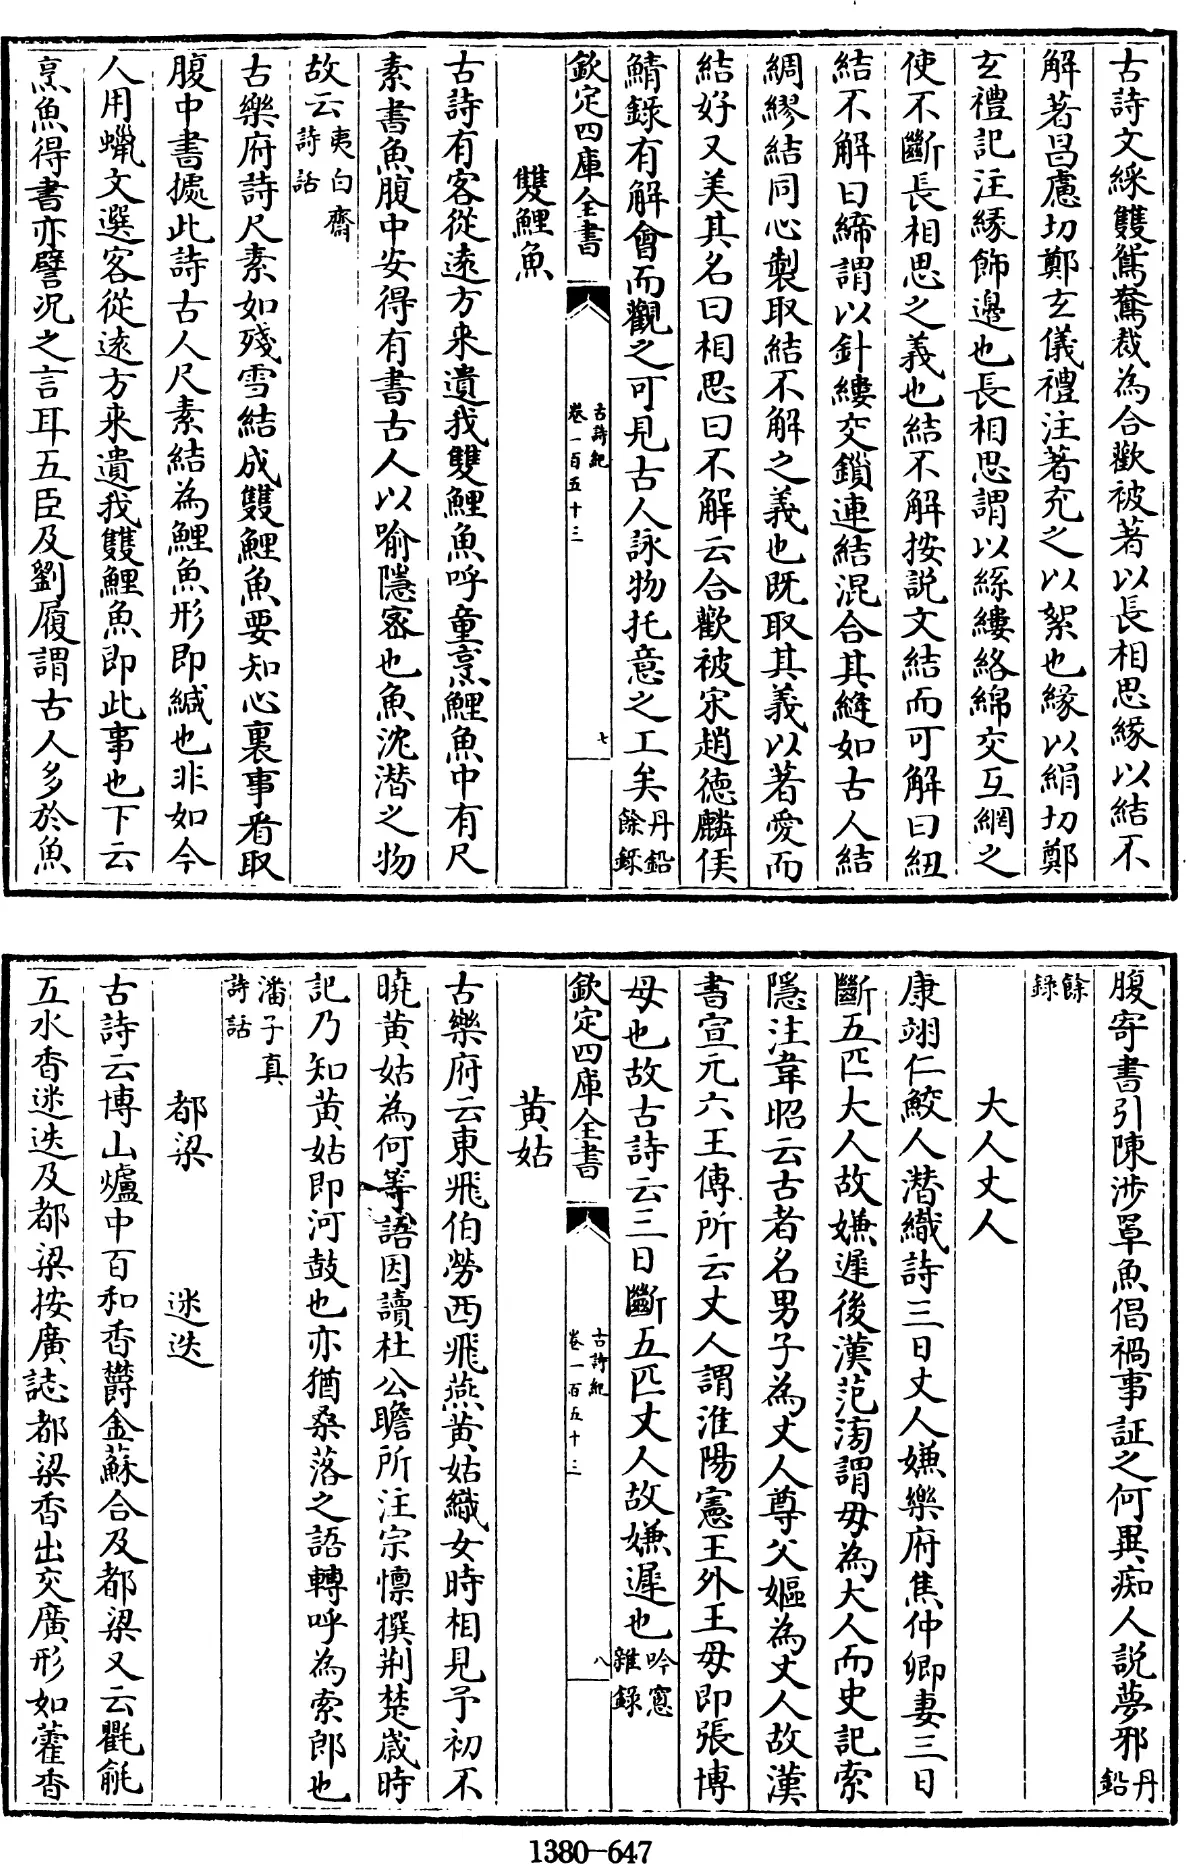 古詩文綵雙鴛鴦裁為合歡被著以長相思緣以結不
解著昌慮切鄭玄儀禮注著充之以絮也緣以絹切鄭
玄禮記注緣飾邊也長相思謂以絲縷絡綿交互網之
使不斷長相思之義也結不解按說文結而可解曰紐
結不解曰締謂以針縷交鎖連結混合其縫如古人結
綢繆結同心製取結不解之義也既取其義以著愛而
結好又美其名曰相思曰不解云合歡被宋趙德麟侯
鯖錄有解會而觀之可見古人詠物托意之工矣丹鉛
餘錄
欽定四庫全書
古詩紀
卷一百五十三
七
雙鯉魚
古詩有客從遠方來遺我雙鯉魚呼童烹鯉魚中有尺
素書魚腹中安得有書古人以喻隱密也魚沈潛之物
故云夷白齋
詩話
古樂府詩尺素如殘雪結成雙鯉魚要知心裏事看取
腹中書據此詩古人尺素結為鯉魚形即緘也非如今
人用蠟文選客從遠方來遺我雙鯉魚即此事也下云
烹魚得書亦譬況之言耳五臣及劉履謂古人多於魚
腹寄書引陳涉罩魚倡禍事証之何異痴人說夢邪丹
鉛
餘
錄
大人丈人
康翊仁鮫人潛織詩三日丈人嫌樂府焦仲卿妻三日
斷五匹大人故嫌遲後漢范滂謂母為大人而史記索
隱注韋昭云古者名男子為丈人尊父嫗為丈人故漢
書宣元六王傳所云丈人謂淮陽憲王外王母即張博
母也故古詩云三日斷五匹丈人故嫌遲也吟窓
雜錄
欽定四庫全書
古詩紀
卷一百五十三
八
黃姑
古樂府云東飛伯勞西飛燕黃姑織女時相見予初不
曉黃姑為何等語因讀杜公瞻所注宗懍撰荆楚歲時
記乃知黃姑即河鼓也亦猶桑落之語轉呼為索郎也
潘子真
詩話
都梁 迷迭
古詩云博山爐中百和香鬱金蘇合及都梁又云氍毹
五水香迷迭及都梁按廣誌都梁香出交廣形如藿香
1380-647